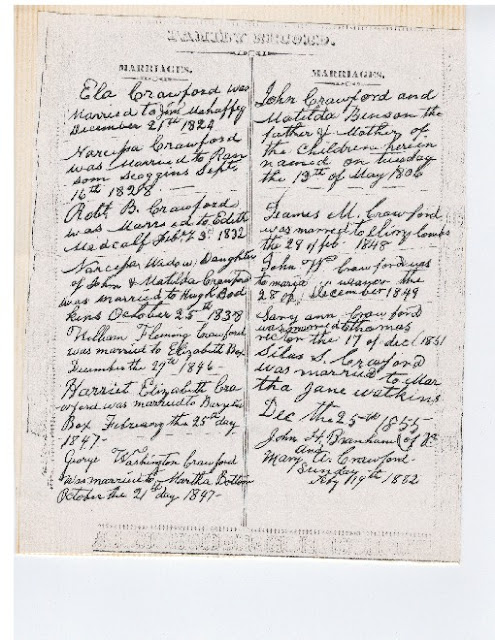 FAMILY RECORD.
MARRIAGES.
Ela Crawford was
Married to Jam^s Mahaffy
December 21^th 1824
Narcissa Crawford
was Married to Ran
som Scoggins Sept.
16^th 1828
Rob^t B. Crawford
was Married to Edith
Medcalf Feb^y 3^d 1832
Narcissa Widow, Daughter
of John & Matilda Crawford
was married to Hugh Bod
kins October 25^th 1838
William Fleming Crawford
was married to Elizabeth Box
December the 29^th 1846
Harriet Elizabeth Cra
wford was married to
Box February the 25^th day
1847-
George Washington Crawford
was married to Martha Bottom
October the 21^st day 1847-
MARRIAGES.
John Crawford and
Matilda Binson the
father & Mother of
the Children herein
named on tuesday
the 13^th of May 1806
James M. Crawford
was married to Combs
the 29 of feb 1848
John W Crawford was
to maria
28 of December 1849
Sary ann Crawford
was married thomas
on the 17 of dec 1851
Silas S. Crawford
was married to Mar
tha Jane Watkins
Dec the 25^th 1855
John H. Branham (of
and
Mary A. Crawford-
Sunday
Feby 19^th 1882